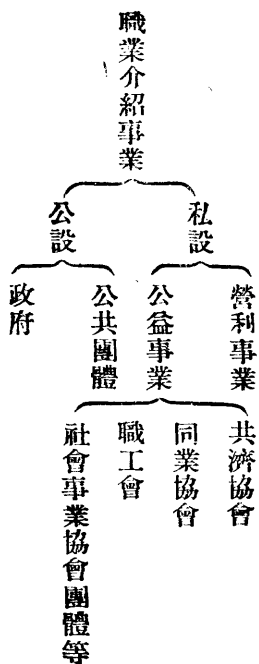 職業介紹事業
私設
公設
營利事業
公益事業
公共團體
政府
共濟協會
同業協會
職工會
社會事業協會團體等